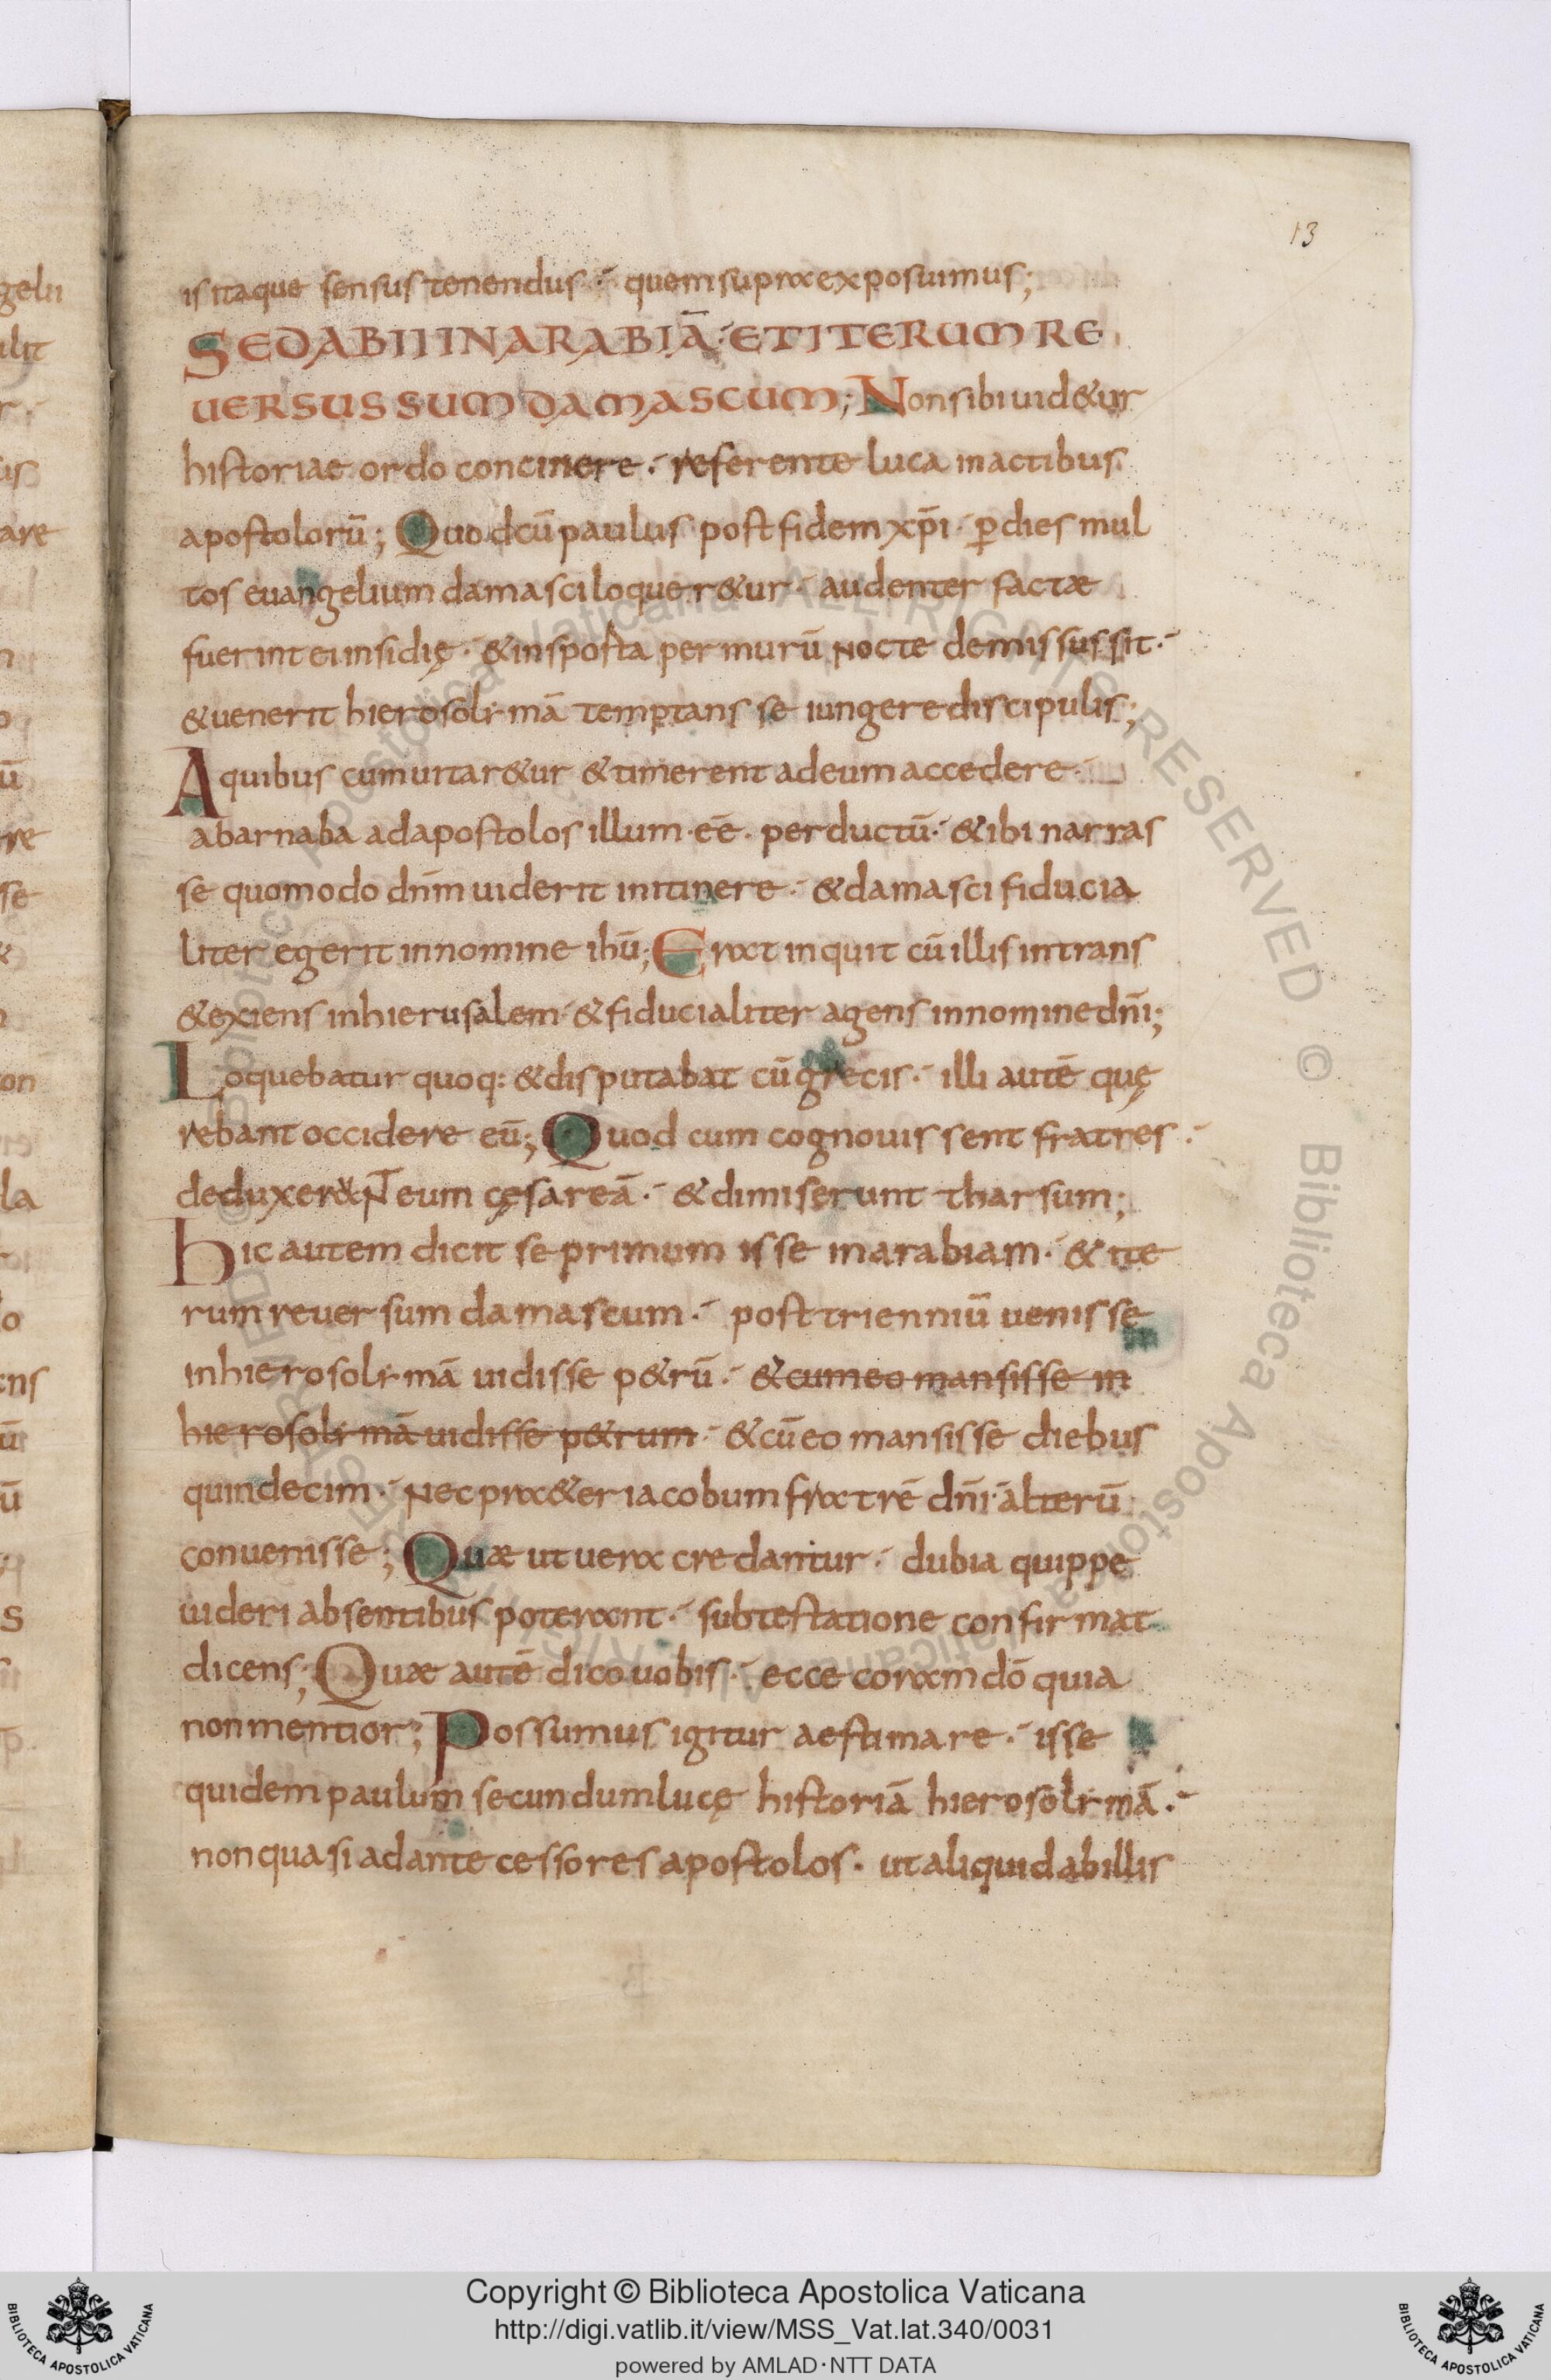 13
is itaque sensus tenendus · quem supra exposuimus;
SED ABII IN ARABIĀ · ET ITERUM RE
UERSUS SUM DAMASCUM; Non sibi uid&ur
historiae ordo concinere · referente luca in actibus
apostolorū; Quod cū paulus post fidem xp̄i · ꝑ dies mul
tos euangelium damasci loquer&ur · audenter factæ
fuerint ei insidię · & in sporta per murū nocte demissus sit ·
& uenerit hierosolimā temptans se iungere discipulis;
A quibus cum uitar&ur & timerent ad eum accedere ·
a barnaba ad apostolos illum · eē · perductū · & ibi narras
se quomodo dn̄m uiderit in itinere · & damasci fiducia
liter egerit in nomine ihū; Erat inquit cū illis intrans
& exiens in hierusalem · & fiducialiter agens in nomine dn̄i;
Loquebatur quoq: & disputabat cū grecis · illi autē quę
rebant occidere eū; Quod cum cognouissent fratres ·
deduxerant eum cęsareā · & dimiserunt tharsum;
hic autem dicit se primum isse in arabiam · & ite
rum reuersum damascum · post trienniū uenisse
in hierosolimā uidisse p&rū · & cum eo mansisse in
hierosolimā uidisse p&rum · & cū eo mansisse diebus
quindecim · nec pra&er iacobum fratrē dn̄i · alterū
conuenisse; Quæ ut uera credantur · dubia quippe
uideri absentibus poterant · sub testatione confirmat
dicens; Quæ autē dico uobis · ecce coram dō quia
non mentior; Possumus igitur aestimare · isse
quidem paulum secundum lucę historiā hierosolimā ·
non quasi ad antecessores apostolos · ut aliquid ab illis
Copyright © Biblioteca Apostolica Vaticana
http://digi.vatlib.it/view/MSS_Vat.lat.340/0031
powered by AMLAD·NTT DATA
BIBLIOTECA APOSTOLICA VATICANA
BIBLIOTECA APOSTOLICA VATICANA